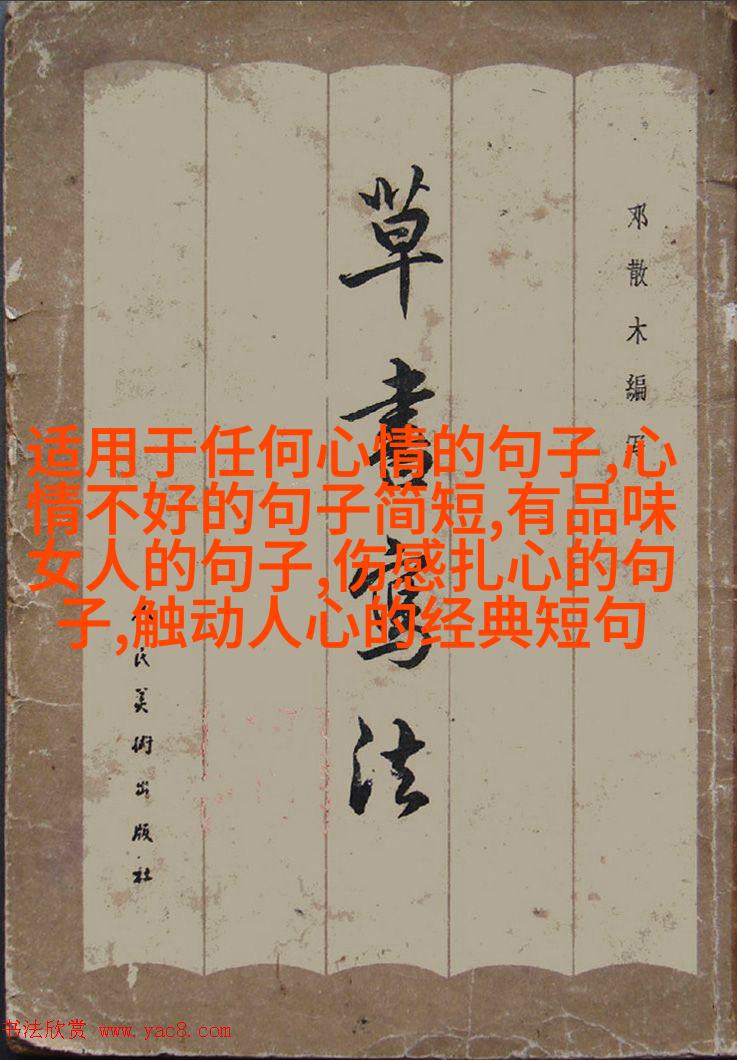 邓散木編
草書寫法
民美術出版社
适用于任何心情的句子,心
情不好的句子简短,有品味
女人的句子,伤感扎心的句
子,触动人心的经典短句
书法欣赏 www.yac8.com